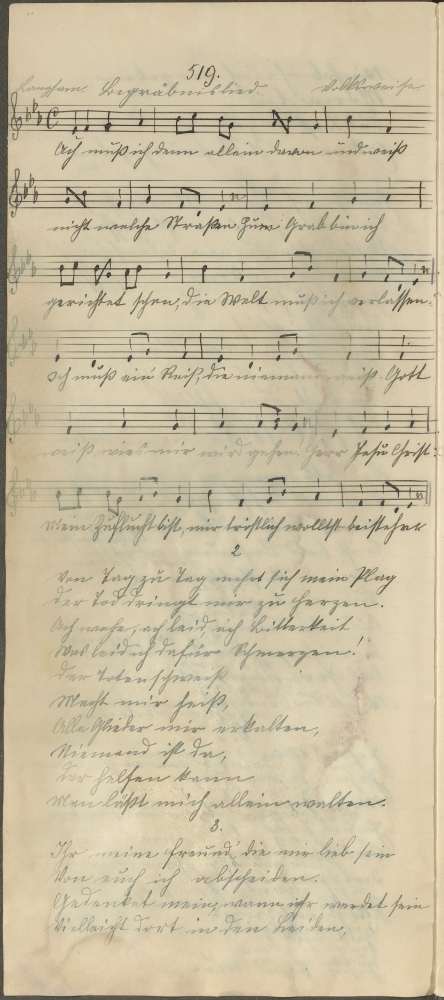 519.
Langsam. Begräbnislied. Volksweise
Ach muß ich denn allein davon und weiß
nicht welche Straßen Zum Grab bin ich
gerichtet schon, die Welt muß ich verlassen.
Ich muß ein Reiß, die niemand weiß. Gott
weiß wies mir wird gehen. Herr Jesu Christ
Mein Zuflucht bist, mir tröstlich wollst beistehen
2
Von Tag zu Tag mehrt sich mein Plag
Der Tod dringt mir zu Herzen.
Ach wehe, ach leid, ach Bitterkeit
Was leid ich dafür Schmerzen!
Der Totenschweiß
Macht mir heiß,
Alle Glieder mir erkalten,
Niemand ist da,
Der helfen kann
Man läßt mich allein walten.
3.
Ihr meine Freund die mir lieb sein
Von euch ich abscheiden.
Gedenket mein, wann ihr werdet sein
Vielleicht dort in den Leiden,